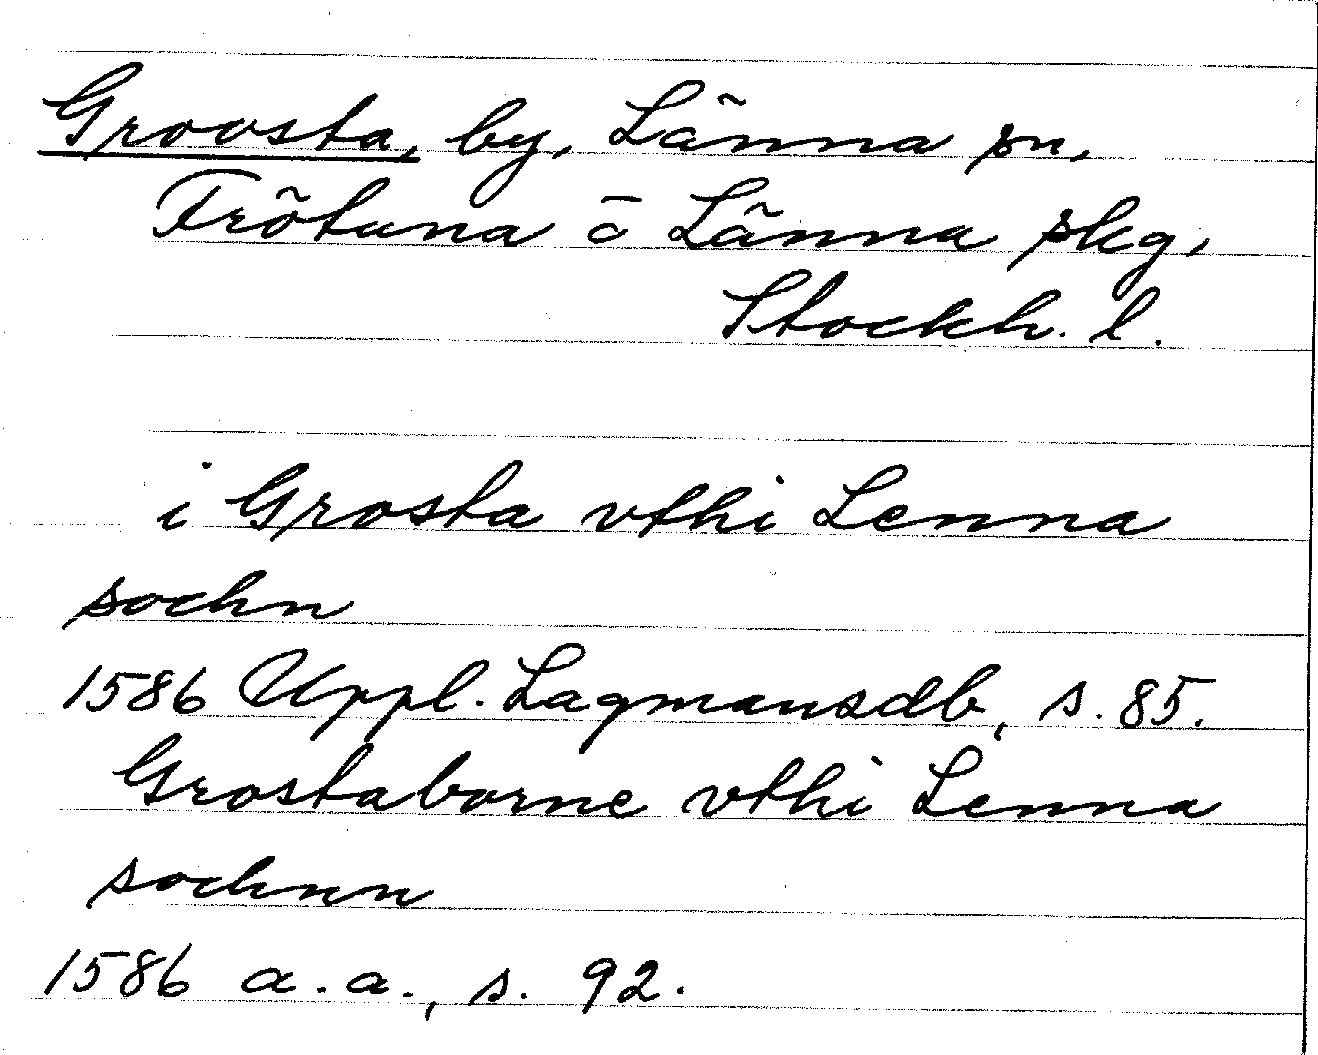 Groosta, by, Länna sn,
Frötuna o Länna skg,
Stockh. l.
i Grosta vthi Lenna
sochn
1586 Uppl. Lagmansdb, s. 85.
Grostaborne vthi Lenna
sochnn
1586 a.a., s. 92.